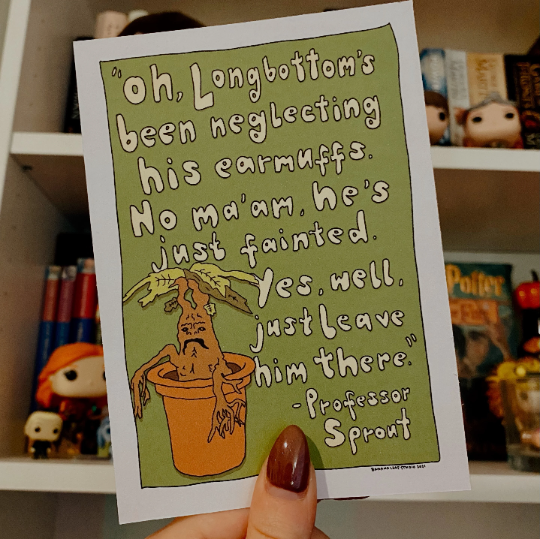 "Oh, Longbottom's
been neglecting
his earmuffs.
No ma'am, he's
just fainted.
Yes, well,
just Leave
him there."
-Professor
Sprout
Potter